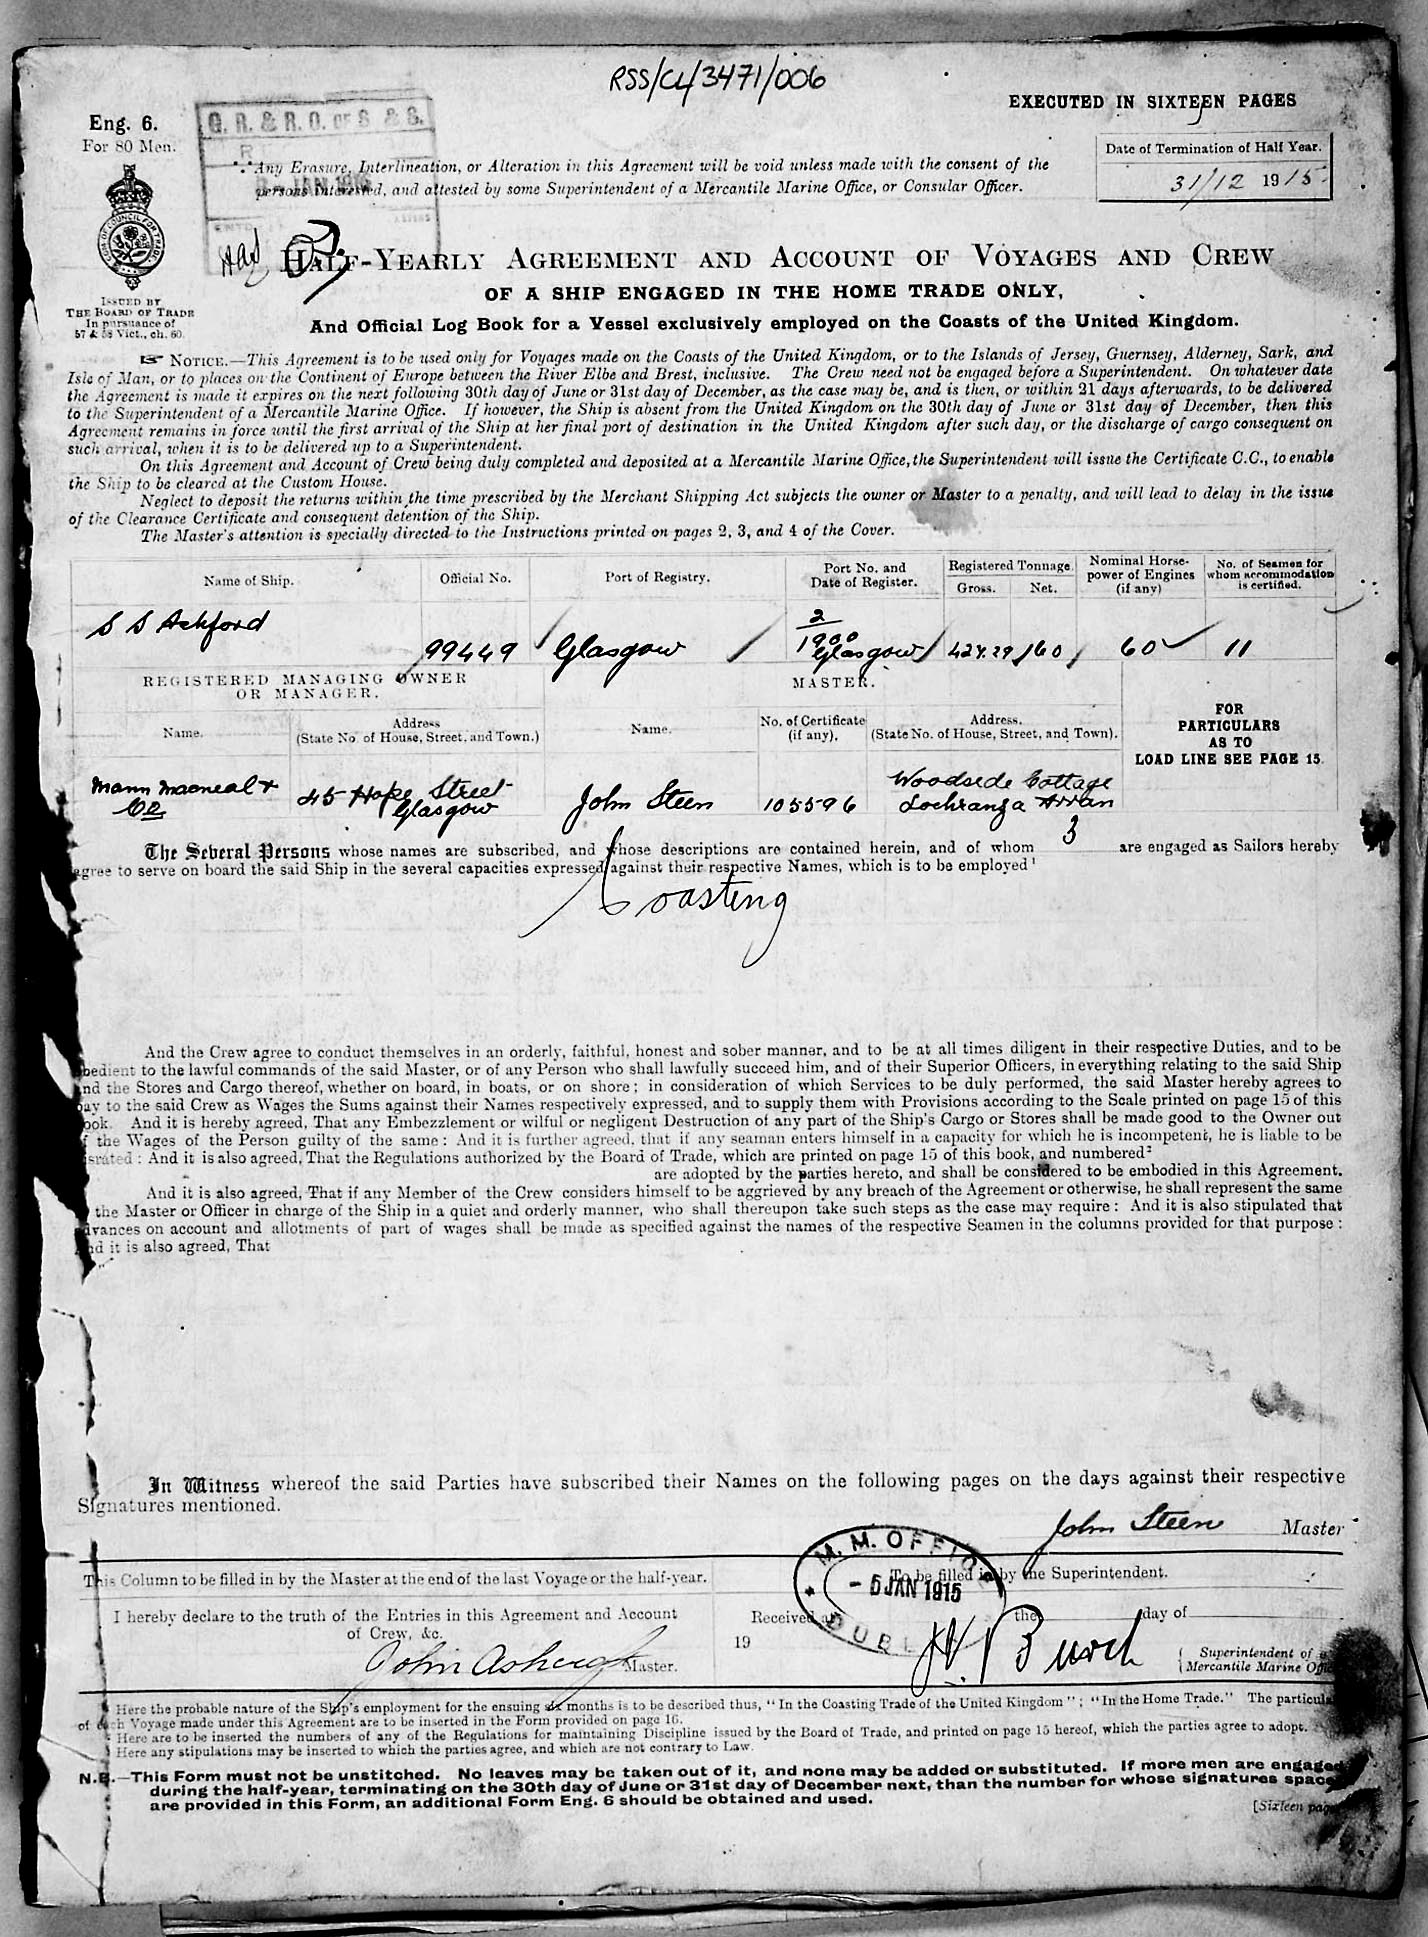 RSS/CL/3471/006
EXECUTED IN SIXTEEN PAGES
Eng. 6.
For 80 Men.
G. R. & R. O. OF S. & S.
Date of Termination of Half Year.
31/12 1915
Any Erasure, Interlineation, or Alteration in this Agreement will be void unless made with the consent of the
persons interested, and attested by some Superintendent of a Mercantile Marine Office, or Consular Officer.
ISSUED BY
THE BOARD OF TRADE
In pursuance of
57 & 58 Vict., ch. 60.
HALF-YEARLY AGREEMENT AND ACCOUNT OF VOYAGES AND CREW
OF A SHIP ENGAGED IN THE HOME TRADE ONLY,
And Official Log Book for a Vessel exclusively employed on the Coasts of the United Kingdom.
☞ NOTICE.—This Agreement is to be used only for Voyages made on the Coasts of the United Kingdom, or to the Islands of Jersey, Guernsey, Alderney, Sark, and
Isle of Man, or to places on the Continent of Europe between the River Elbe and Brest, inclusive. The Crew need not be engaged before a Superintendent. On whatever date
the Agreement is made it expires on the next following 30th day of June or 31st day of December, as the case may be, and is then, or within 21 days afterwards, to be delivered
to the Superintendent of a Mercantile Marine Office. If however, the Ship is absent from the United Kingdom on the 30th day of June or 31st day of December, then this
Agreement remains in force until the first arrival of the Ship at her final port of destination in the United Kingdom after such day, or the discharge of cargo consequent on
such arrival, when it is to be delivered up to a Superintendent.
On this Agreement and Account of Crew being duly completed and deposited at a Mercantile Marine Office, the Superintendent will issue the Certificate C.C., to enable
the Ship to be cleared at the Custom House.
Neglect to deposit the returns within the time prescribed by the Merchant Shipping Act subjects the owner or Master to a penalty, and will lead to delay in the issue
of the Clearance Certificate and consequent detention of the Ship.
The Master's attention is specially directed to the Instructions printed on pages 2, 3, and 4 of the Cover.
Name of Ship. Official No. Port of Registry. Port No. and Date of Register. Registered Tonnage. Gross. Net. Nominal Horse-power of Engines (if any) No. of Seamen for whom accommodation is certified.
S S Ashford 99449 Glasgow 2/1900 Glasgow 424.29 160 60 11
REGISTERED MANAGING OWNER OR MANAGER.
MASTER.
Name. Address (State No. of House, Street, and Town.) Name. No. of Certificate (if any). Address. (State No. of House, Street, and Town).
FOR
PARTICULARS
AS TO
LOAD LINE SEE PAGE 15.
Mann Macneal & Co 45 Hope Street Glasgow John Steen 105596 Woodside Cottage Lochranza Arran
The Several Persons whose names are subscribed, and whose descriptions are contained herein, and of whom 3 are engaged as Sailors hereby
agree to serve on board the said Ship in the several capacities expressed against their respective Names, which is to be employed¹
Coasting
And the Crew agree to conduct themselves in an orderly, faithful, honest and sober manner, and to be at all times diligent in their respective Duties, and to be
bedient to the lawful commands of the said Master, or of any Person who shall lawfully succeed him, and of their Superior Officers, in everything relating to the said Ship
nd the Stores and Cargo thereof, whether on board, in boats, or on shore; in consideration of which Services to be duly performed, the said Master hereby agrees to
pay to the said Crew as Wages the Sums against their Names respectively expressed, and to supply them with Provisions according to the Scale printed on page 15 of this
ook. And it is hereby agreed, That any Embezzlement or wilful or negligent Destruction of any part of the Ship's Cargo or Stores shall be made good to the Owner out
f the Wages of the Person guilty of the same: And it is further agreed, that if any seaman enters himself in a capacity for which he is incompetent, he is liable to be
israted: And it is also agreed, That the Regulations authorized by the Board of Trade, which are printed on page 15 of this book, and numbered²
are adopted by the parties hereto, and shall be considered to be embodied in this Agreement.
And it is also agreed, That if any Member of the Crew considers himself to be aggrieved by any breach of the Agreement or otherwise, he shall represent the same
the Master or Officer in charge of the Ship in a quiet and orderly manner, who shall thereupon take such steps as the case may require: And it is also stipulated that
dvances on account and allotments of part of wages shall be made as specified against the names of the respective Seamen in the columns provided for that purpose:
nd it is also agreed, That
In Witness whereof the said Parties have subscribed their Names on the following pages on the days against their respective
Signatures mentioned.
John Steen Master
M. M. OFFICE
- 5 JAN 1915
DUBL
This Column to be filled in by the Master at the end of the last Voyage or the half-year.
To be filled in by the Superintendent.
I hereby declare to the truth of the Entries in this Agreement and Account
of Crew, &c.
John Ashcroft Master.
Received at the day of
19
Burch
Superintendent of a
Mercantile Marine Office
Here the probable nature of the Ship's employment for the ensuing six months is to be described thus, "In the Coasting Trade of the United Kingdom"; "In the Home Trade." The particula
of each Voyage made under this Agreement are to be inserted in the Form provided on page 16.
Here are to be inserted the numbers of any of the Regulations for maintaining Discipline issued by the Board of Trade, and printed on page 15 hereof, which the parties agree to adopt.
Here any stipulations may be inserted to which the parties agree, and which are not contrary to Law.
N.B.—This Form must not be unstitched. No leaves may be taken out of it, and none may be added or substituted. If more men are engaged
during the half-year, terminating on the 30th day of June or 31st day of December next, than the number for whose signatures space
are provided in this Form, an additional Form Eng. 6 should be obtained and used.
[Sixteen pag